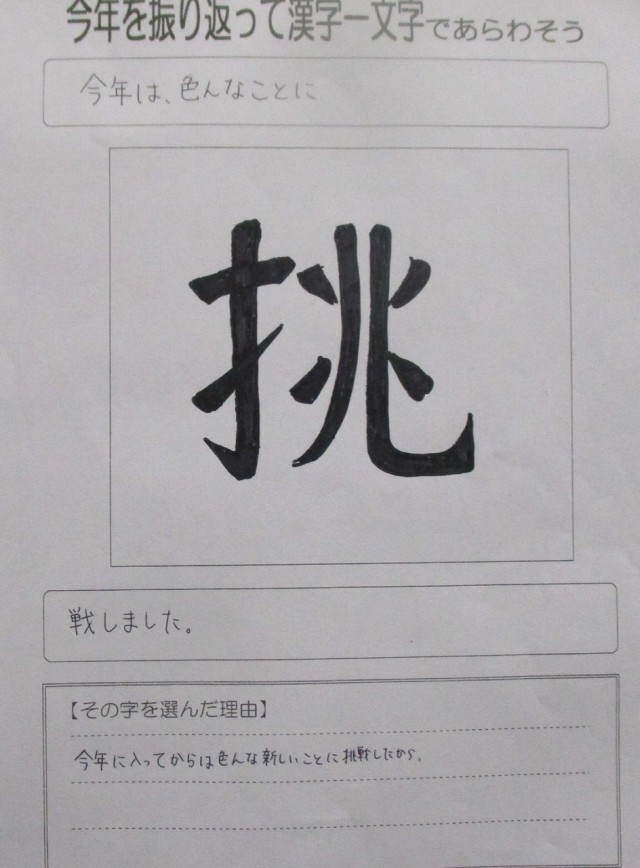 今年を振り返って漢字一文字であらわそう
今年は、色んなことに
挑
戦しました。
【その字を選んだ理由】
今年に入ってからは色んな新しいことに挑戦したから。